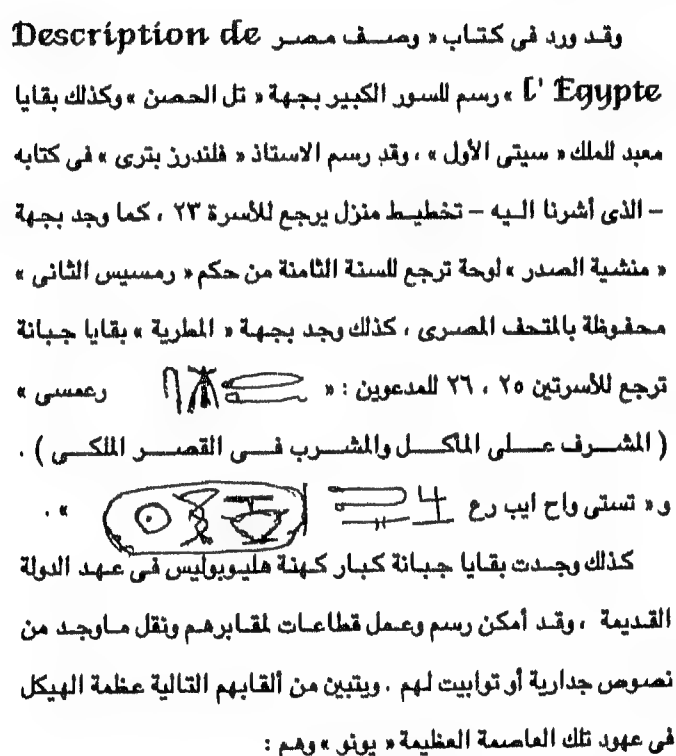 وقد ورد فى كتاب « وصف مصر Description de
l' Egypte » رسم للسور الكبير بجهة « تل الحصن » وكذلك بقايا
معبد للملك « سيتى الأول » ، وقد رسم الاستاذ « فلندرز بترى » فى كتابه
– الذى أشرنا اليه – تخطيط منزل يرجع للأسرة ٢٣ ، كما وجد بجهة
« منشية الصدر » لوحة ترجع للسنة الثامنة من حكم « رمسيس الثانى »
محفوظة بالمتحف المصرى ، كذلك وجد بجهة « المطرية » بقايا جبانة
ترجع للأسرتين ٢٥ ، ٢٦ للمدعوين : « رعمسى »
( المشرف على المأكل والمشرب فى القصر الملكى ) .
و « تستى واح ايب رع » .
كذلك وجدت بقايا جبانة كبار كهنة هليوبوليس فى عهد الدولة
القديمة ، وقد أمكن رسم وعمل قطاعات لمقابرهم ونقل ماوجد من
نصوص جدارية أو توابيت لهم . ويتبين من ألقابهم التالية عظمة الهيكل
فى عهود تلك العاصمة العظيمة « يونو » وهم :